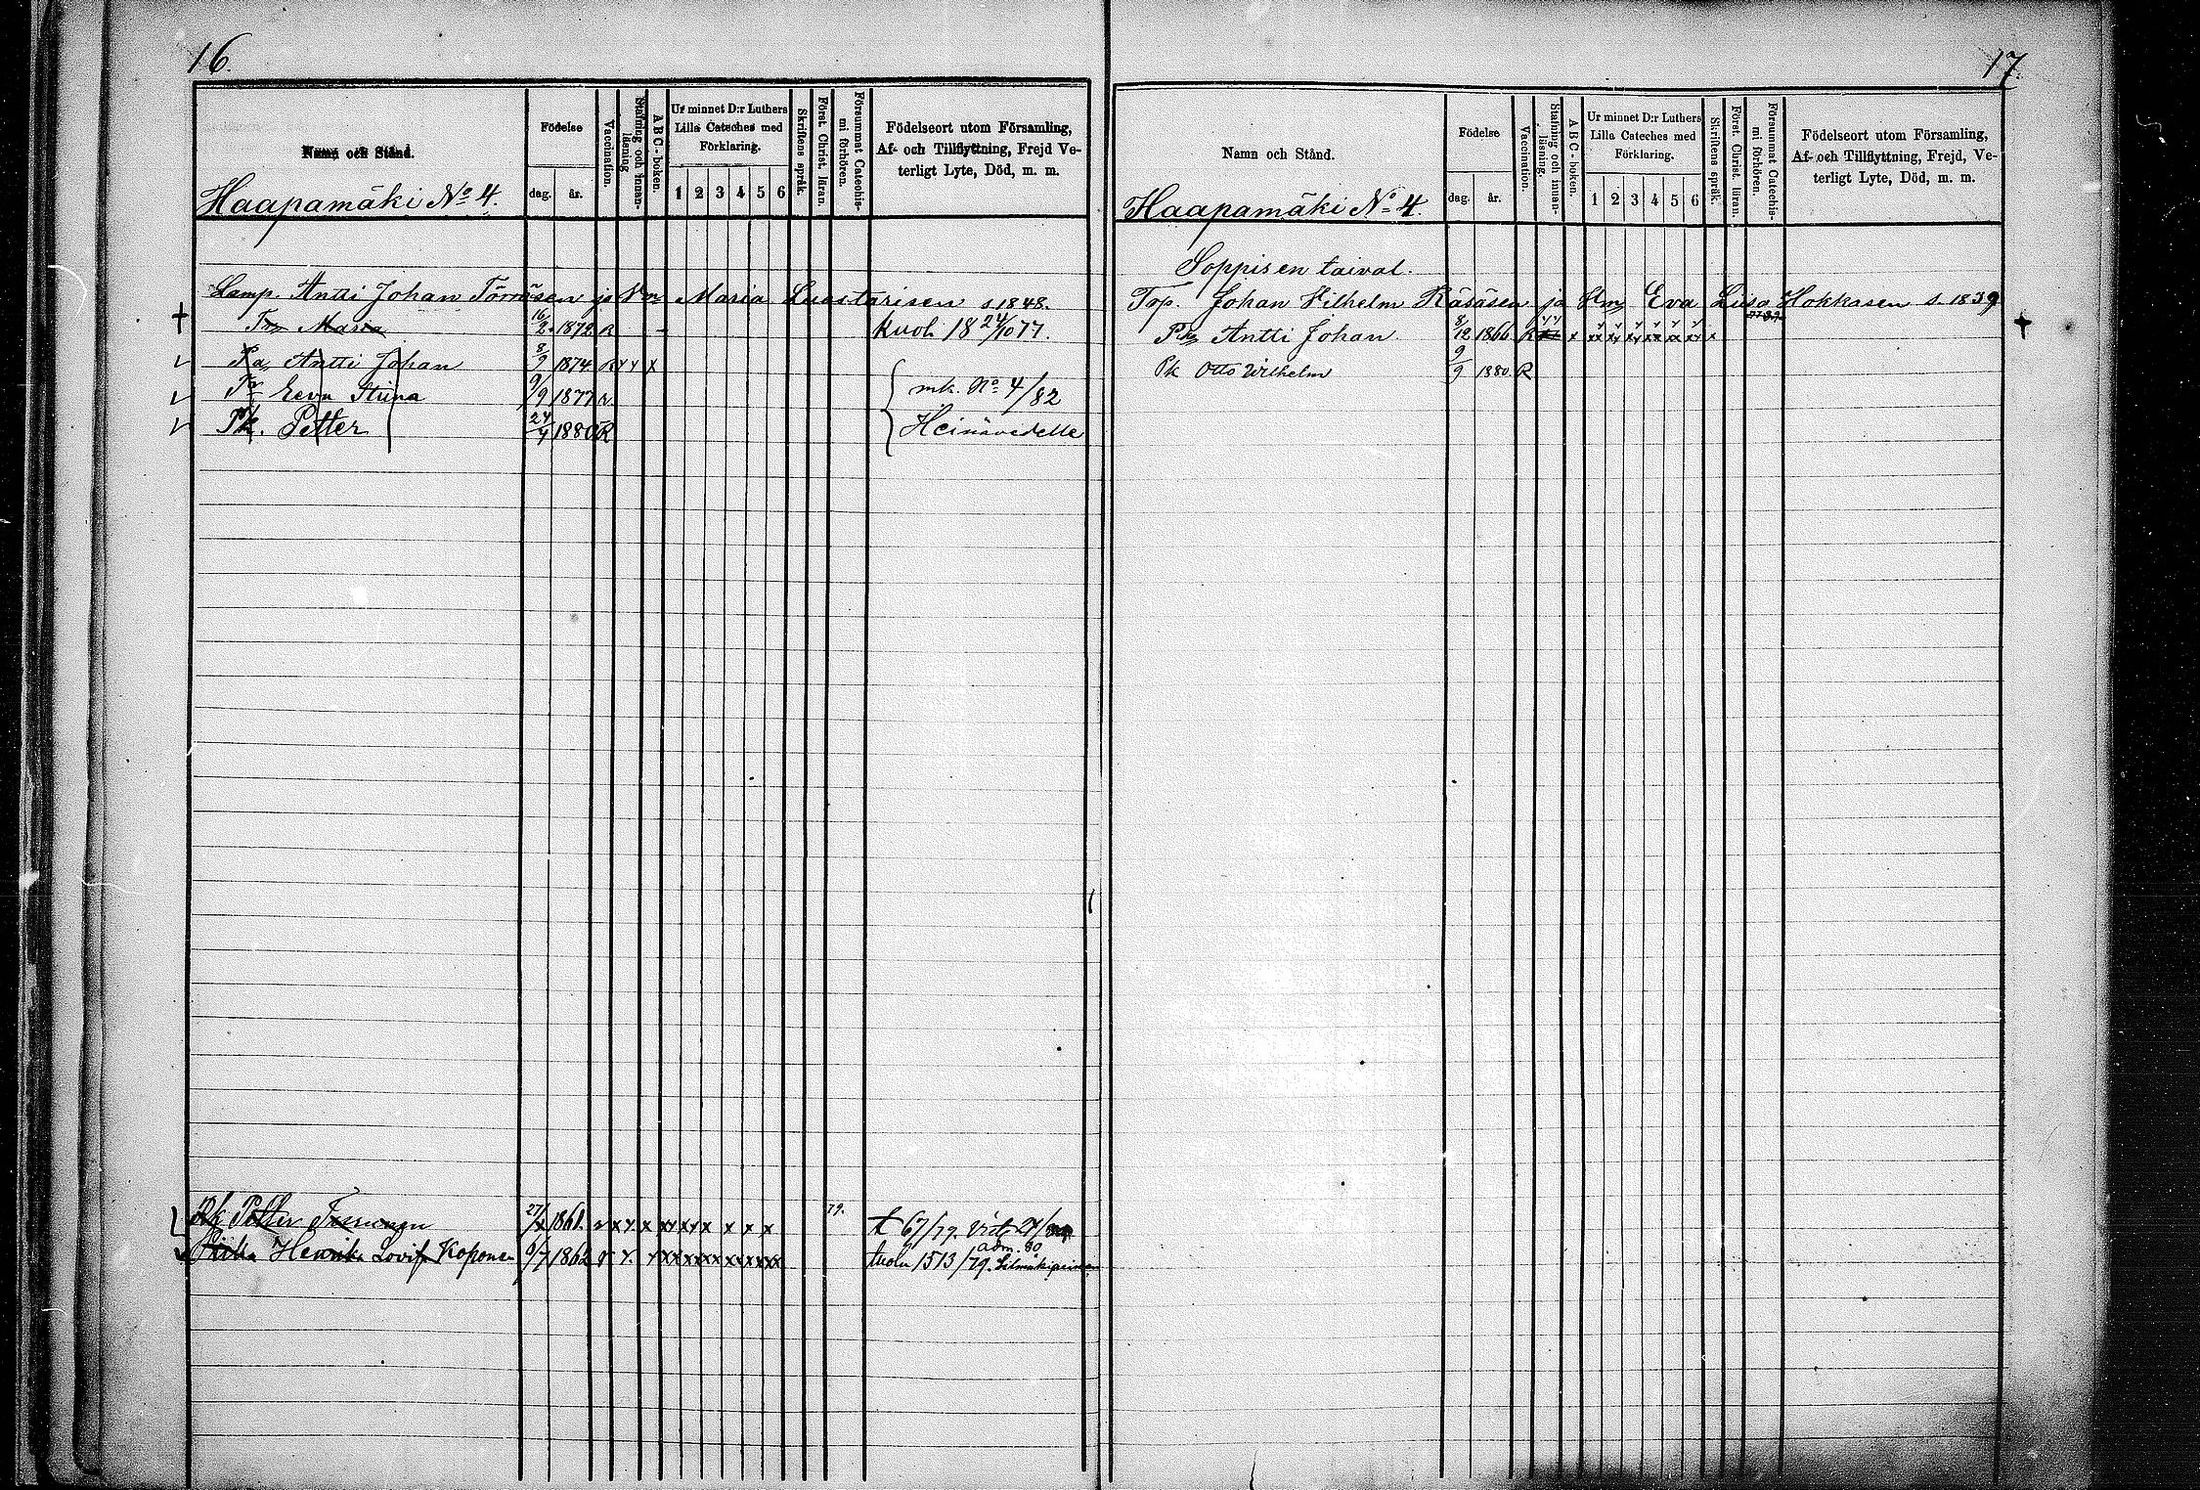 16.
Namn och Stånd.
Haapamäki No 4.
Födelse
dag.
år.
Vaccination.
Stafning och innan-
läsning
A B C - boken.
Ur minnet D:r Luthers
Lilla Cateches med
Förklaring.
1 2 3 4 5 6
Skriftens språk.
Först. Christ. läran.
Försummat Catechis-
mi förhören.
Födelseort utom Församling,
Af- och Tillflyttning, Frejd Ve-
terligt Lyte, Död, m. m.
Lamp. Antti Johan Törrösen ja Vm Maria Luostarisen s. 1848.
Tr Maria 16/2 1872. R - kuoli 18 24/10 77.
Pa Antti Johan 8/9 1874 R x x x
Tr Eeva Stiina 9/9 1877 R.
mk. No 4/82
Pk. Petter 24/4 1880 R
Heinävedelle
Rk Petter 27/ 1861. x x x x x x x x x 79. t 67/79.
Henrika Lovisa Koponen 9/7 1862 x x x x x x x x tuolu 1513/79.
adm. 80
17.
Namn och Stånd.
Haapamäki No 4.
Födelse
dag.
år.
Vaccination.
Stafning och innan-
läsning.
A B C - boken.
Ur minnet D:r Luthers
Lilla Cateches med
Förklaring.
1 2 3 4 5 6
Skriftens språk.
Först. Christ. läran.
Försummat Catechis-
mi förhören.
Födelseort utom Församling,
Af- och Tillflyttning, Frejd, Ve-
terligt Lyte, Död, m. m.
Soppisen taival.
Top. Johan Vilhelm Räsäsen ja Vm Eva Luisa Hokkasen s. 1839
Pk Antti Johan 8/12 1866 R x xx xx xx xx xx xx x
Pk Otto Wilhelm 9/9 1880. R